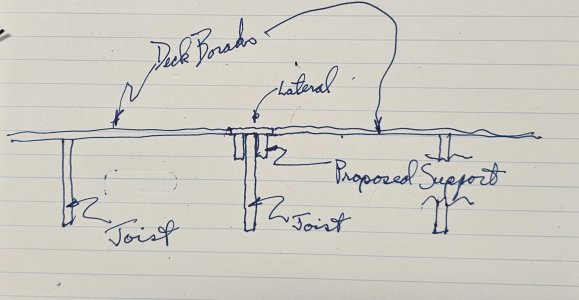 Deck Borads
Lateral
Proposed Support
Joist
Joist